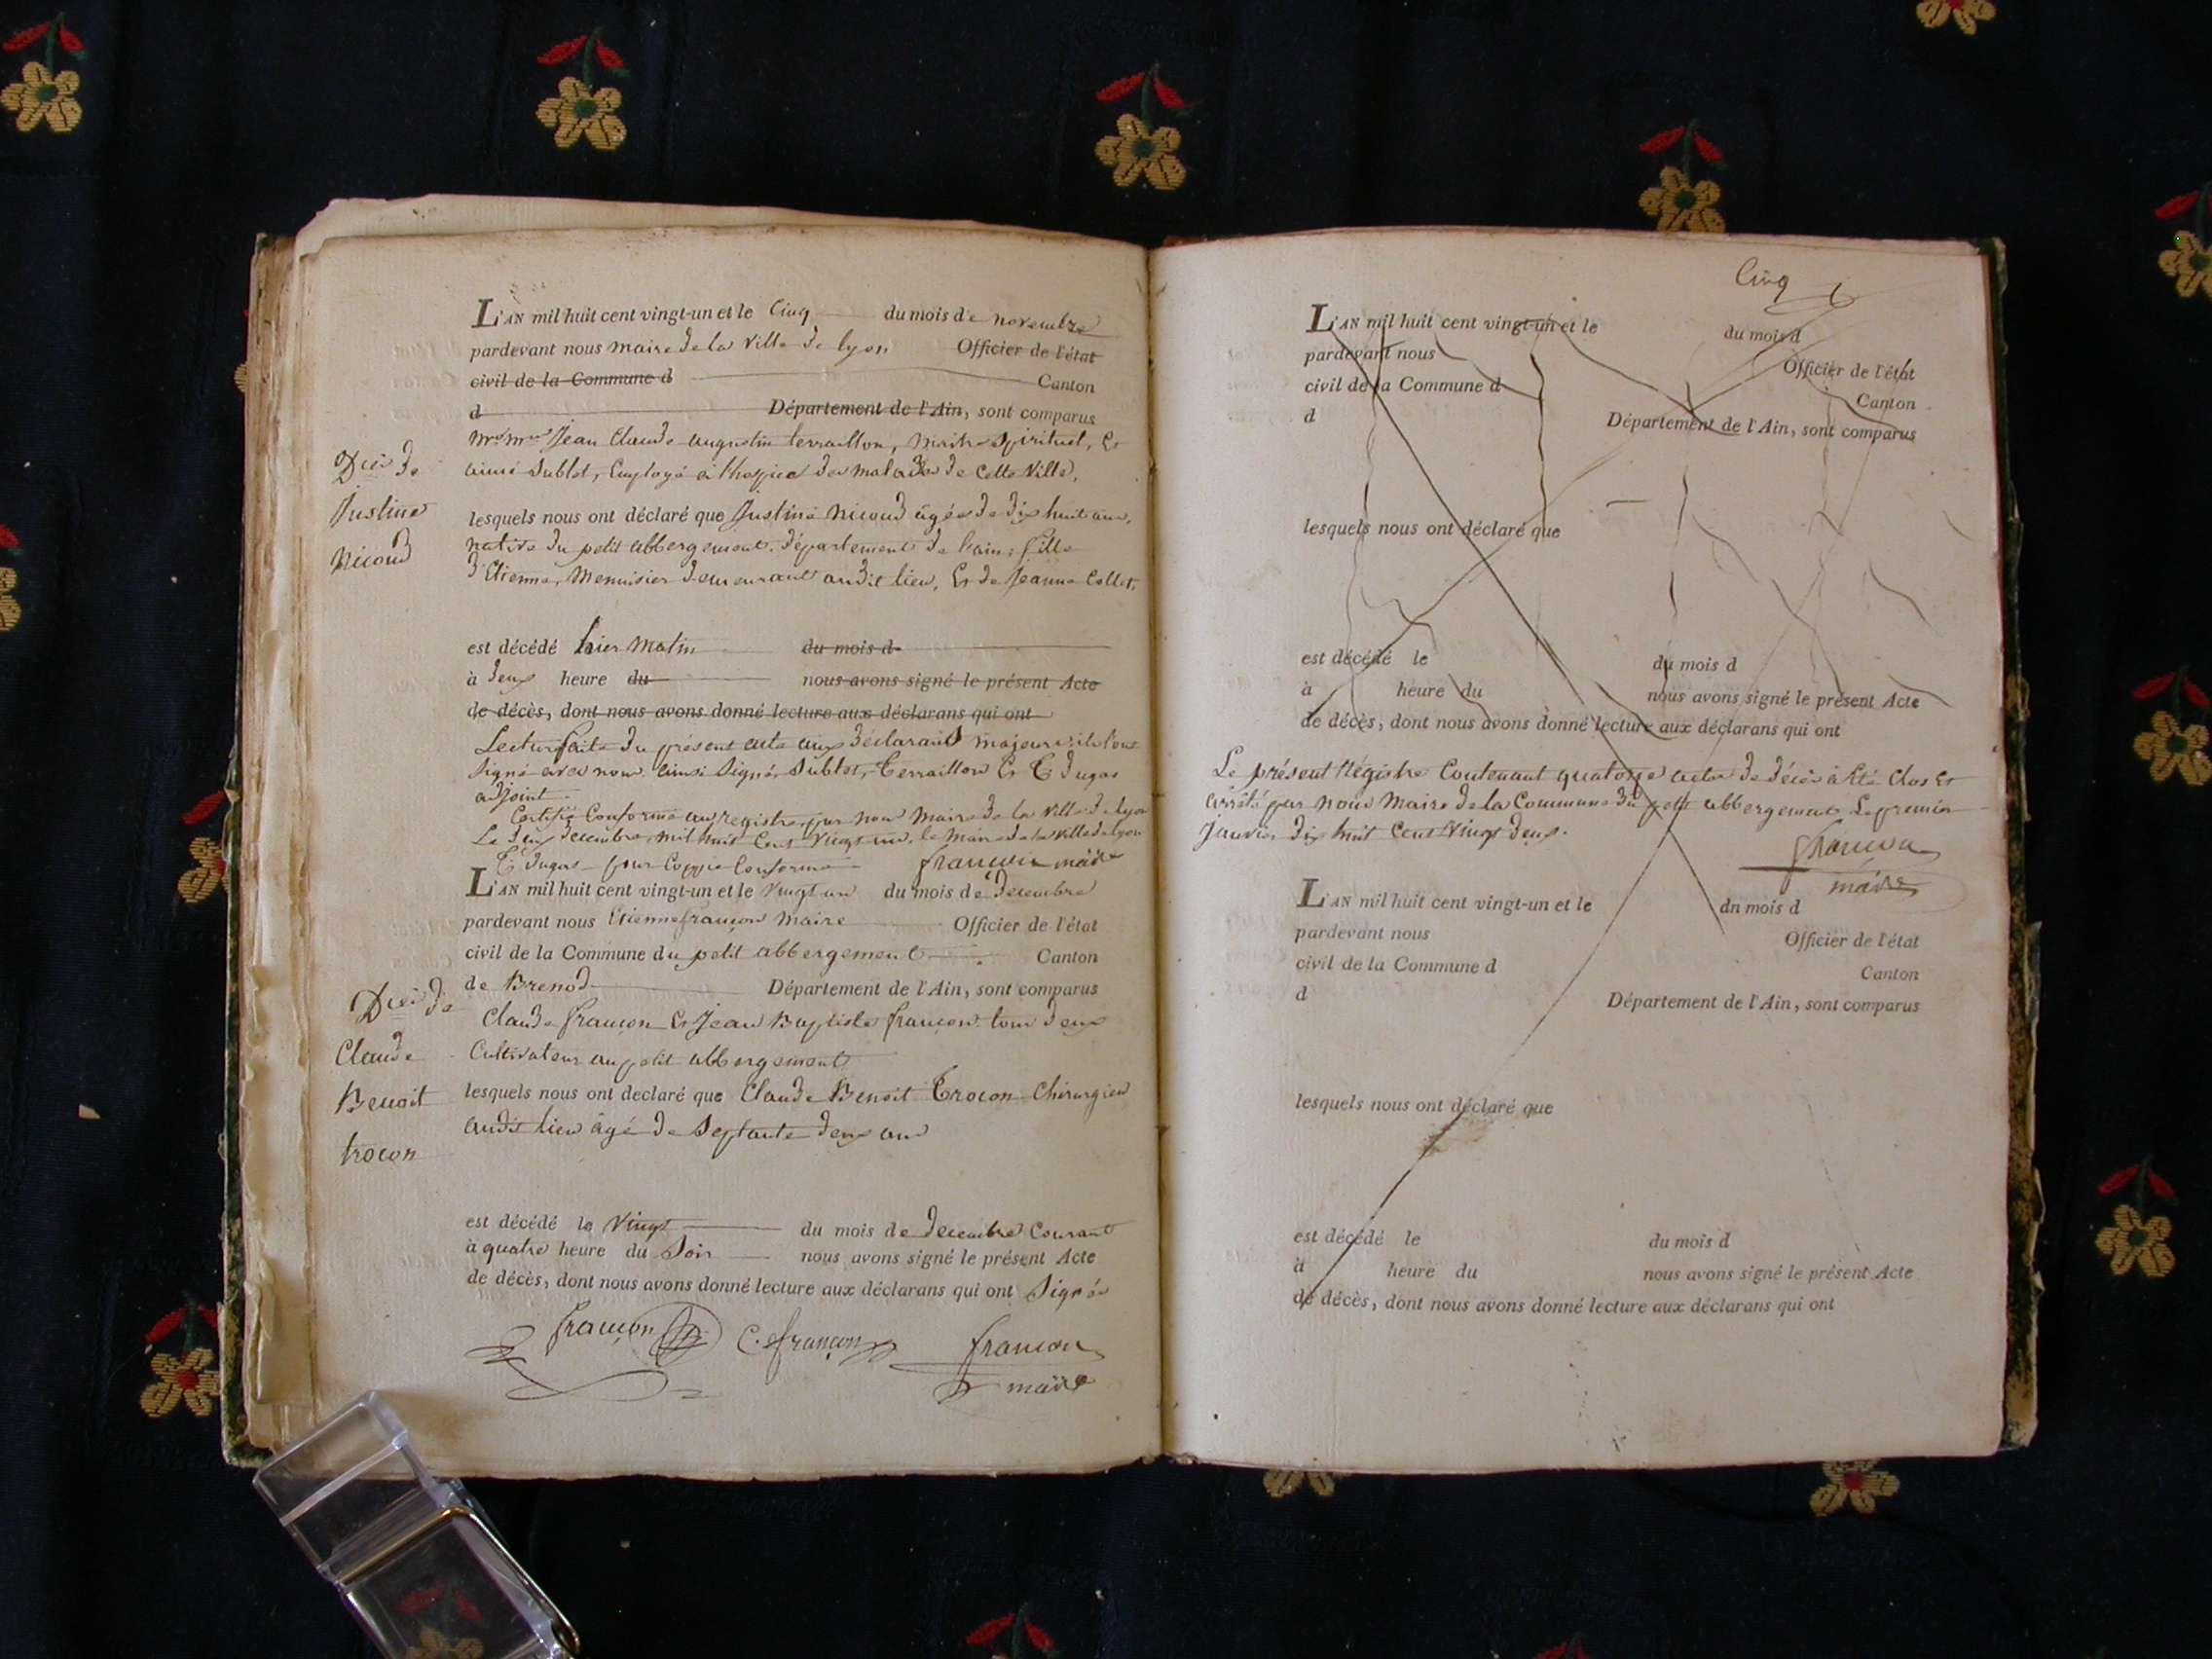 L'AN mil huit cent vingt-un et le Cinq du mois de novembre
pardevant nous maire de la Ville de lyon Officier de l'état
civil de la Commune d Canton
d Département de l'Ain, sont comparus
Jean Claude augustin terraillon, maitre Spirituel, Et
aimé Sublet, Employé à l'hospice des malades de cette Ville,
lesquels nous ont déclaré que Justine Nicoud âgée de dix huit ans,
native du petit abbergement, département de l'ain, fille
d'Etienne, Menuisier demeurant audit lieu, Et de Jeanne Collet,
est décédé hier matin du mois d
à deux heure du nous avons signé le présent Acte
de décès, dont nous avons donné lecture aux déclarans qui ont
Lecture faite du présent acte aux déclarants majeurs, ils l'ont
Signé avec nous. ainsi Signé, Sublet, Terraillon Et T Dugas
adjoint.
Certifié Conforme au registre par nous Maire de la Ville de lyon
Le deux decembre mil huit Cent Vingt un. le Maire de la Ville de lyon
T Dugas pour Coppie Conforme françon maire
Décè de
Justine
Nicoud
L'AN mil huit cent vingt-un et le vingt un du mois de Decembre
pardevant nous Etienne françon Maire Officier de l'état
civil de la Commune du petit abbergement Canton
de Brenod Département de l'Ain, sont comparus
Claude françon Et Jean Baptiste françon tous deux
Cultivateur au petit abbergement
lesquels nous ont declaré que Claude Benoit Trocon Chirurgien
audit lieu âgé de Septante deux ans
est décédé le Vingt du mois de decembre Courant
à quatre heure du Soir nous avons signé le présent Acte
de décès, dont nous avons donné lecture aux déclarans qui ont Signés
françon C. françon françon
maire
Décè de
Claude
Benoit
trocon
Cinq
L'AN mil huit cent vingt-un et le du mois d
pardevant nous Officier de l'état
civil de la Commune d Canton
d Département de l'Ain, sont comparus
lesquels nous ont déclaré que
est décédé le du mois d
à heure du nous avons signé le présent Acte
de décès, dont nous avons donné lecture aux déclarans qui ont
Le présent Régistre Contenant quatorze actes de décès à Eté Clos Et
arrêté par nous Maire de la Commune du petit abbergement Le premier
Janvier dix huit Cent Vingt deux.
françon
maire
L'AN mil huit cent vingt-un et le dn mois d
pardevant nous Officier de l'état
civil de la Commune d Canton
d Département de l'Ain, sont comparus
lesquels nous ont déclaré que
est décédé le du mois d
à heure du nous avons signé le présent Acte
de décès, dont nous avons donné lecture aux déclarans qui ont